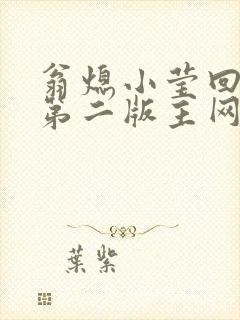 翁熄小莹回
第二版主网
葉紫